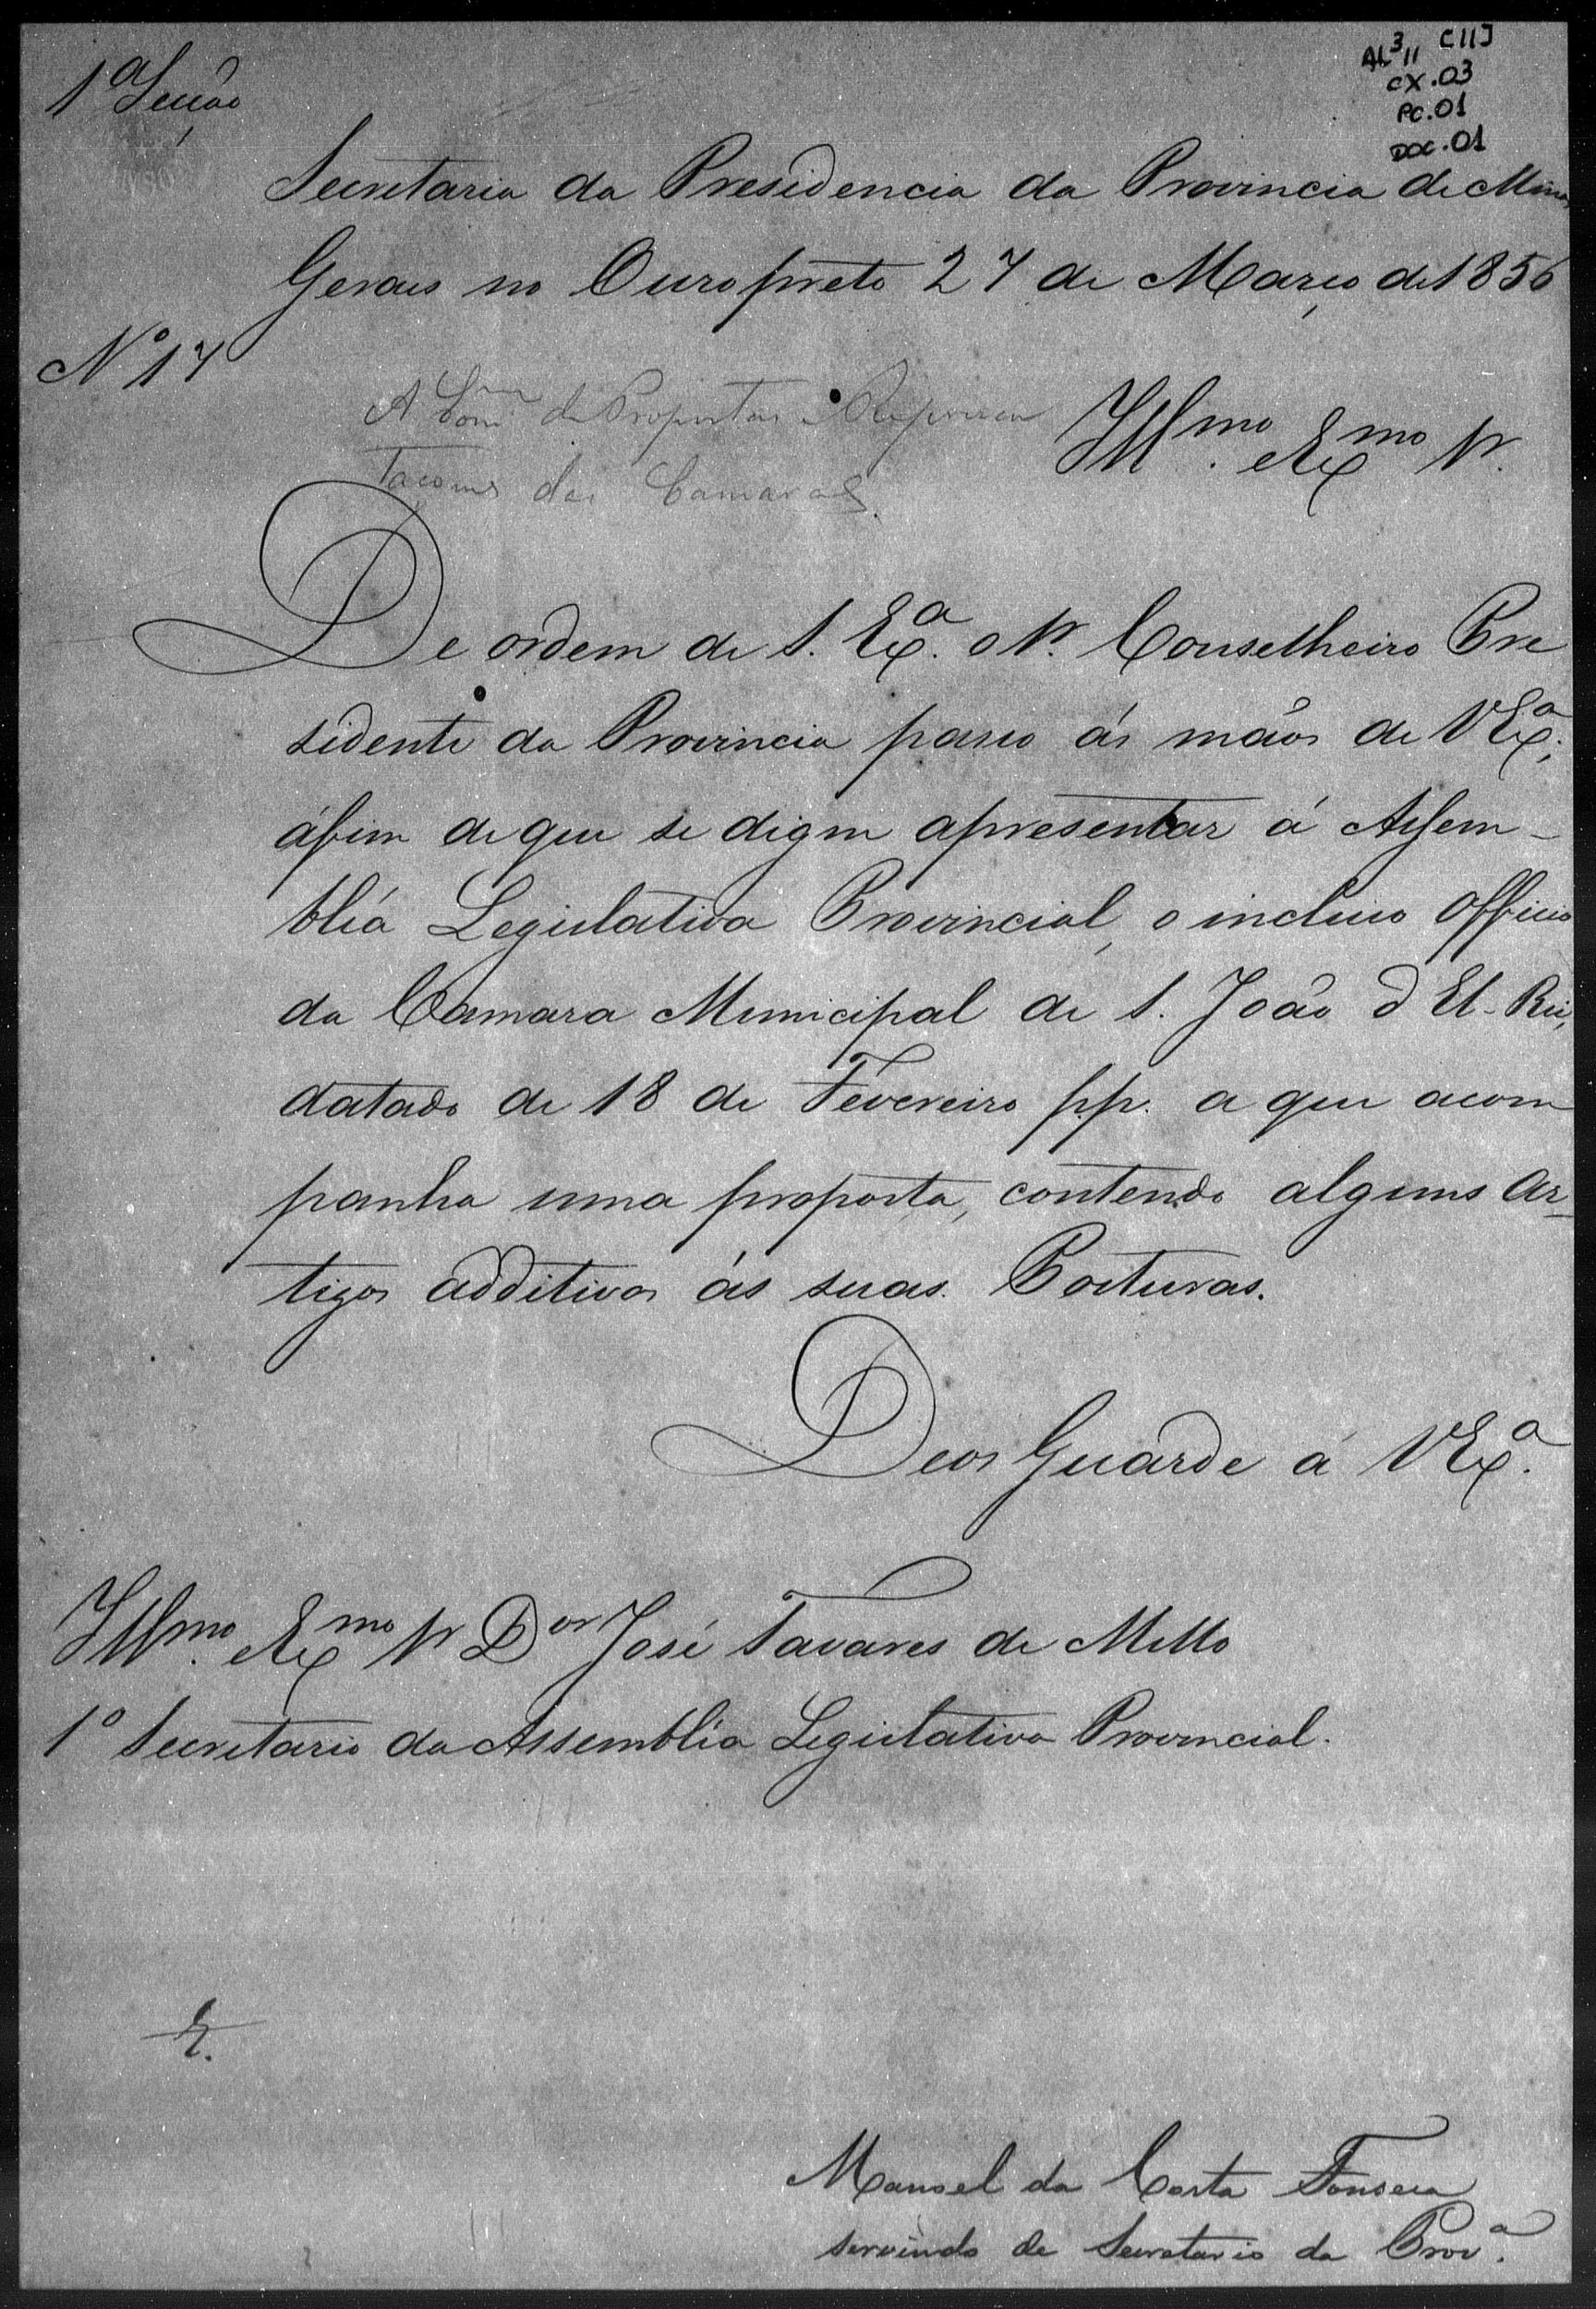 AL³11 C11J
CX.03
PC.01
DOC.01
1ª Secção
Secretaria da Presidencia da Provincia de Minas
Geraes no Ouro preto 27 de Março de 1856
Nº 17
A Com.m de Propostas e Represen
tações das Camaras.
Illmo. e Exmo Sr.
De ordem de S. Exª. o Sr. Conselheiro Pre
sidente da Provincia passo ás mãos de V Exª.,
áfim de que se digne apresentar á Assem-
bléa Legislativa Provincial, o incluso Officio
da Camara Municipal de S. João d'El-Rei,
datado de 18 de Fevereiro pp. a que acom
panha uma proposta, contendo alguns Ar-
tigos additivos ás suas Posturas.
Deos Guarde á V Exª.
Illmo. e Exmo Sr Dor José Tavares de Mello
1º Secretario da Assembléa Legislativa Provincial.
Manoel da Costa Fonseca
servindo de Secretario da Provª.